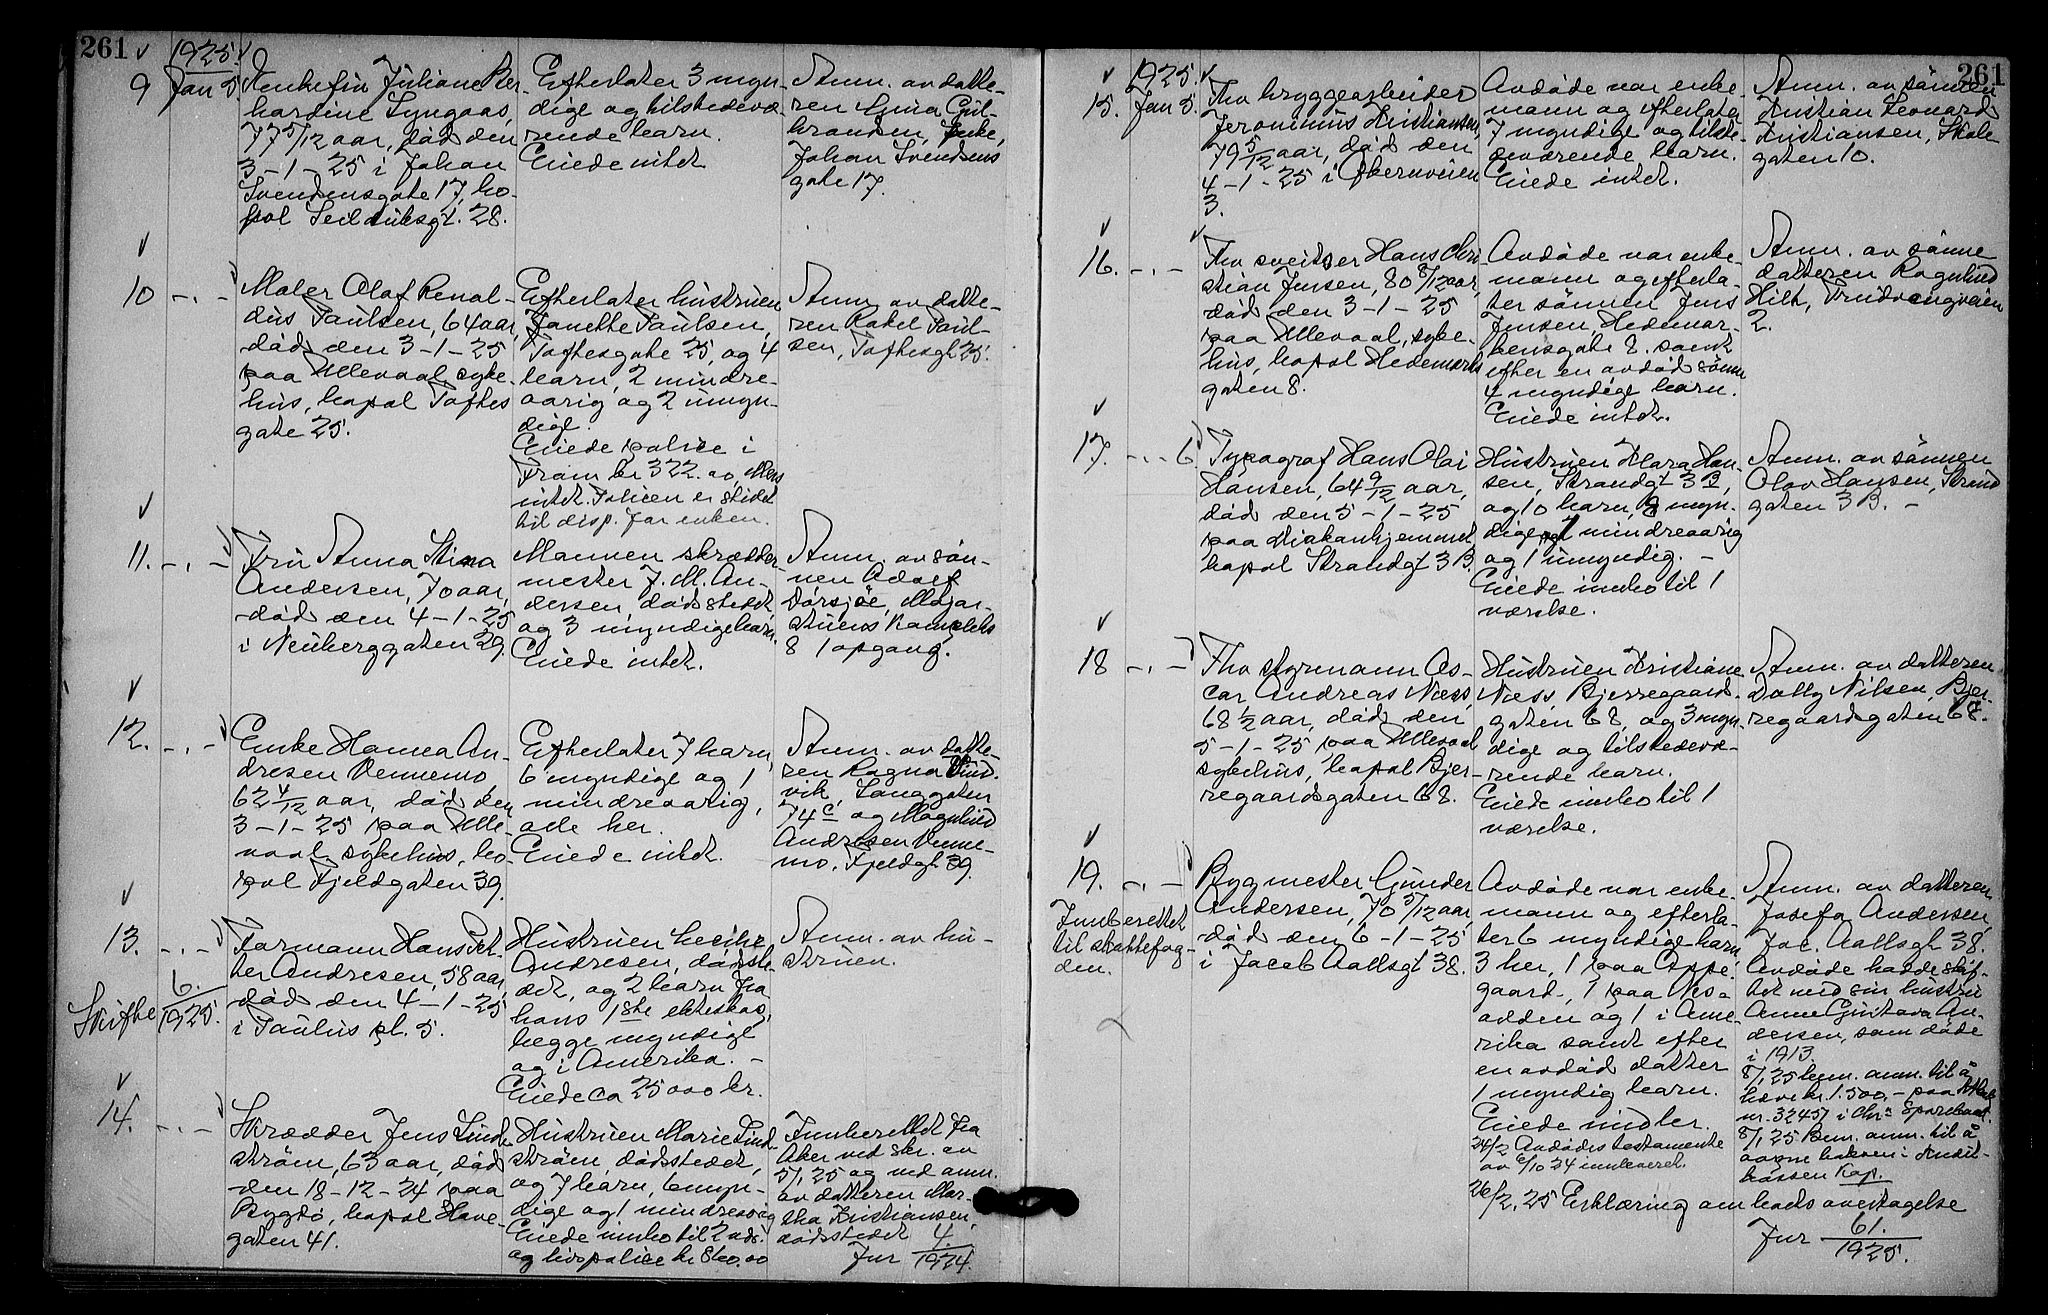 261
1925.
9
Jan 5.
Enkefru Juliane Ber-
hardine Lyngaas,
77 5/12 aar, død den
3-1-25 i Johan
Svendsensgate 17, bo-
pol Seilduksgt. 28.
Efterlater 3 myn-
dige og tilstedevæ-
rende barn.
Eiede intet
Anm. av datte-
ren Gina Gul-
brandsen, Enke,
Johan Svendsens
gate 17.
10 -.-
Maler Olaf Renal-
dus Paulsen, 64 aar,
død den 3-1-25
paa Ullevaal syke-
hus, bopol Toftes
gate 25.
Efterlater hustruen
Janette Paulsen,
Toftesgate 25, og 4
barn, 2 mindre-
aarig og 2 umyn-
dige.
Eiede police i
Fram kr 322.00, Ellers
intet. Policen er stillet
til disp. for enken.
Anm. av datte-
ren Rakel Paul-
sen, Toftesgt 25.
11. -.-
Fru Anna Stina
Andersen, 70 aar,
død den 4-1-25
i Neuberggaten 29.
Mannen skrædder-
mester J. M. An-
dersen, dødsstedet
og 3 myndige barn.
Eiede intet.
Anm. av søn-
nen Adolf
Dørsjøe, Major-
stuens Kompleks
8 1 opgang.
12. -.-
Enke Hanna An-
dresen Vennemo,
62 4/12 aar, død den
3-1-25 paa Ulle-
vaal sykehus, bo-
pol Fjeldgaten 39.
Efterlater 7 barn,
6 myndige og 1
mindreaarig,
alle her.
Eiede intet.
Anm. av datte-
ren Ragna Vind-
vik, Langgaten
74 c og Magnhild
Andresen Venne-
mo, Fjeldgt 39.
13. -.-
Skifte 6./1925.
Formann Hans Pet-
ter Andresen, 58 aar,
død den 4-1-25
i Paulus pl. 5.
Hustruen Cecilie
Andresen, dødste-
det, og 2 barn fra
hans 1ste ekteskap,
begge myndige
og i Amerika. -
Eiede ca 25000 kr.
Anm. av hu-
struen.
14. -.-
Skrædder Jens Lind-
strøm, 63 aar, død
den 18-12-24 paa
Bygdø, bopol Have-
gaten 41.
Hustruen Marie Lind-
strøm, dødsstedet,
og 7 barn, 6 myn-
dige og 1 mindreaarig
Eiede innbo til 2 vds.
og livspolice kr 800.00
Innberettet fra
Aker ved skr. av
5/1 25 og ved anm.
av datteren Mar-
tha Kristiansen,
dødsstedet
Jnr 4./1924.
261
1925
15. Jan 5.
Fhv bryggearbeider
Jeronimus Kristiansen,
79 5/12 aar, død den
4-1-25 i Økernveien
3.
Avdøde var enke-
mann og efterlater
7 myndige og tilste-
deværende barn.
Eiede intet.
Anm. av sønnen
Kristian Leonard
Kristiansen, Skole
gaten 10.
16. -.-
Fhv sveitser Hans Chri
stian Jensen, 80 8/12 aar,
død den 3-1-25
paa Ullevaal syke-
hus, bopol Hedemarks
gaten 8.
Avdøde var enke-
mann og efterla-
ter sønnen Jens
Jensen, Hedemar-
kensgate 8. samt
efter en avdød sønn
4 myndige barn.
Eiede intet.
Anm. av sønne
datteren Ragnhild
Hilt, Trudvangveien
2.
17. -.-
Typograf Hans Olai
Hansen, 64 9/12 aar,
død den 5-1-25
paa Diakonhjemmet,
bopol Strandgt 3 B.
Hustruen Klara Han-
sen, Strandgt 3 B,
og 10 barn, 8 myn-
dige, 1 mindreaarig
og 1 umyndig. -
Eiede innbo til 1
værelse.
Anm. av sønnen
Olav Hansen, Strand
gaten 3 B. -
18 -.-
Fhv styrmann Os-
car Andreas Næss,
68 1/2 aar, død den
5-1-25 paa Ullevaal
sykehus, bopol Bjer-
regaardsgaten 68.
Hustruen Kristiane
Næss, Bjerregaards-
gaten 68, og 3 myn-
dige og tilstedevæ-
rende barn.
Eiede innbo til 1
værelse.
Anm. av datteren
Dolly Nilsen, Bjer-
regaardsgaten 68.
19. -.-
Innberettet
til skattefog-
den.
Bygmester Gunder
Andersen, 70 5/12 aar,
død den 6-1-25
i Jacob Aallsgt 38.
Avdøde var enke-
mann og efterla-
ter 6 myndige barn,
3 her, 1 paa Oppe-
gaard, 1 paa Neso-
odden og 1 i Ame-
rika samt efter
en avdød datter
1 myndig barn.
Eiede midler.
24/2 Avdødes testamente
av 6/10 24 innleveret.
26/2, 25 Erklæring om boets overtagelse
Anm. av datteren
Josefa Andersen,
Jac. Aallsgt 38.
Avdøde hadde skif-
tet med sin hustru
Anne Gustava An-
dersen, som døde
i 1913.
8/1 25 bem. anm. til å
heve kr. 1.500,- paa
nr. 32457 i Chra Sparebank.
8/1 25 Bem. anm. til å
aapne boksen i Andel-
bossen Kap.
Jnr 61./1925.